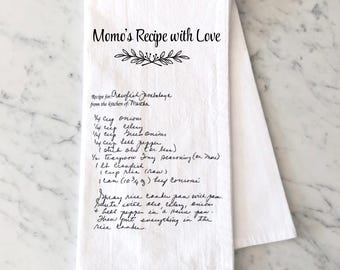 Momo's Recipe with Love
Recipe for: Crawfish Jambalaya
from the kitchen of: Martha
¼ cup onions
¼ cup celery
¼ cup Green Onions
¼ cup bell pepper
1 stick oleo (or less)
Teaspoon Tony Seasoning (or more)
1 lb Crawfish
1 cup rice (raw)
1 can (10 ½ oz) beef consomé
Spray rice cooker pan with pam
Sauté with oleo, celery, onion
+ bell pepper in a
pan.
Then put everything in the
rice cooker